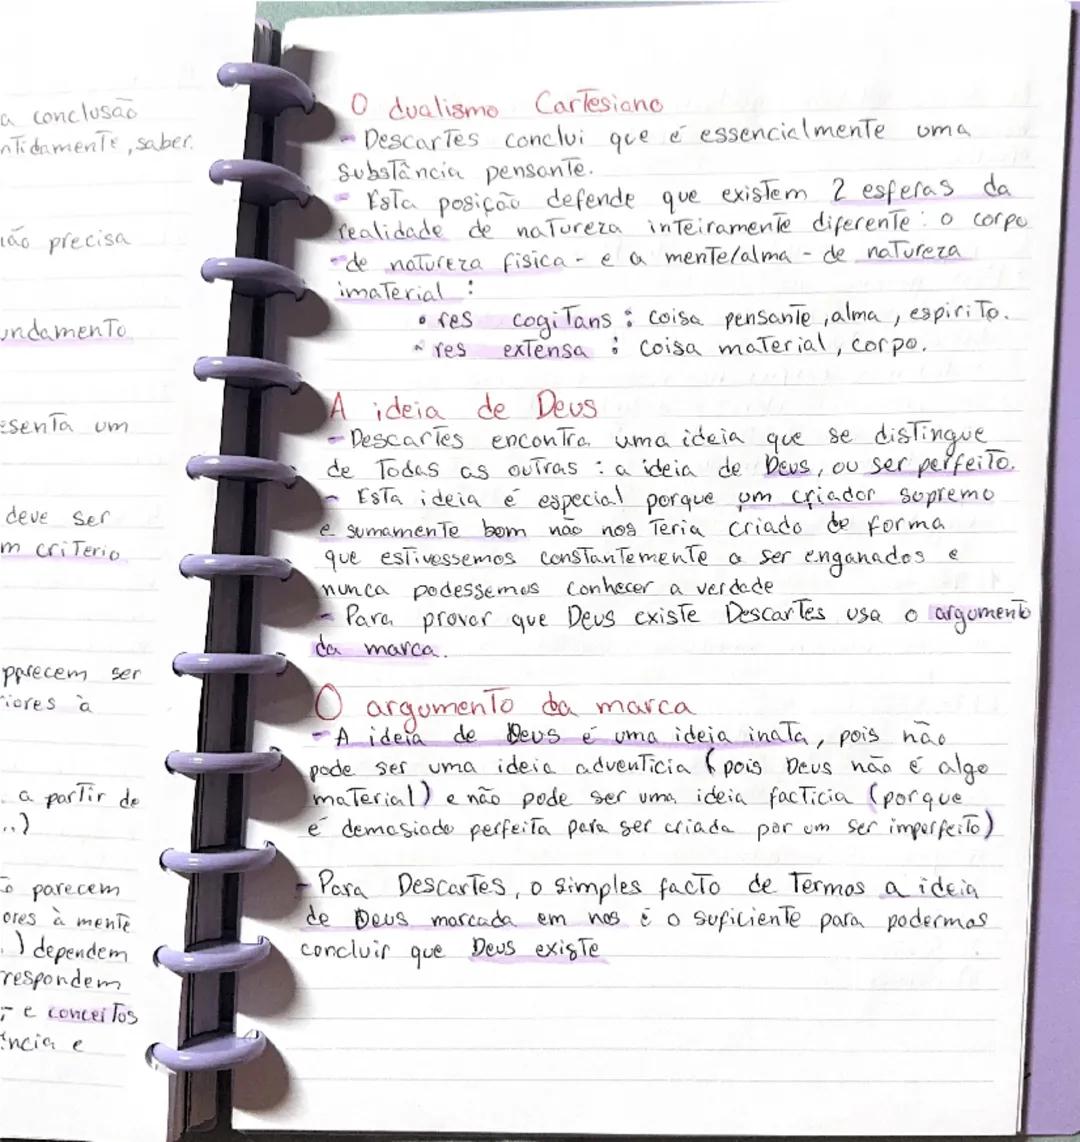 a conclusão
ntidamente, saber.
ão precisa
undamento
esenta um
deve ser
m criterio
parecem ser
riores à
a partir de
..)
parecem
ores à mente
.) dependem
respondem
e conceitos
ência e
O dualismo Cartesiano
- Descartes conclui que é essencialmente uma
substância pensante.
- Esta posição defende que existem 2 esferas da
realidade de natureza inteiramente diferente: o corpo
- de natureza fisica - e a mente/alma - de natureza
imaterial:
• res cogitans: coisa pensante, alma, espirito.
• res extensa: coisa material, corpo.
A ideia de Deus
- Descartes encontra uma ideia que se distingue
de Todas as outras: a ideia de Deus, ou ser perfeito.
- Esta ideia é especial porque um criador supremo
e sumamente bom não nos teria criado de forma
que estivessemos constantemente a ser enganados e
nunca podessemos conhecer a verdade
- Para provar que Deus existe Descartes usa o argumento
da marca.
O argumento da marca
- A ideia de Deus é uma ideia inata, pois não
pode ser uma ideia adventicia (pois Deus não é algo
material) e não pode ser uma ideia facticia (porque
é demasiado perfeita para ser criada por um ser imperfeito)
- Para Descartes, o simples facto de Termos a ideia
de Deus marcada em nos é o suficiente para podermos
concluir que Deus existe